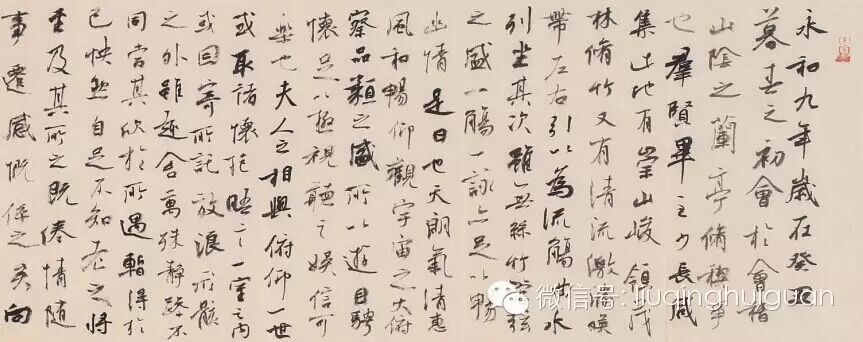 永和九年歲在癸丑
暮春之初會於會稽
山陰之蘭亭脩禊事
也羣賢畢至少長咸
集此地有崇山峻領茂
林脩竹又有清流激湍暎
帶左右引以為流觴曲水
列坐其次雖無絲竹管弦
之盛一觴一詠亦足以暢
幽情是日也天朗氣清惠
風和暢仰觀宇宙之大俯
察品類之盛所以遊目騁
懷足以極視聽之娛信可
樂也夫人之相與俯仰一世
或取諸懷抱晤言一室之內
或因寄所託放浪形骸
之外雖趣舍萬殊靜躁不
同當其欣於所遇暫得於
己怏然自足不知老之將
至及其所之既倦情隨
事遷感慨係之矣向
微信号: liuqinghuiguan